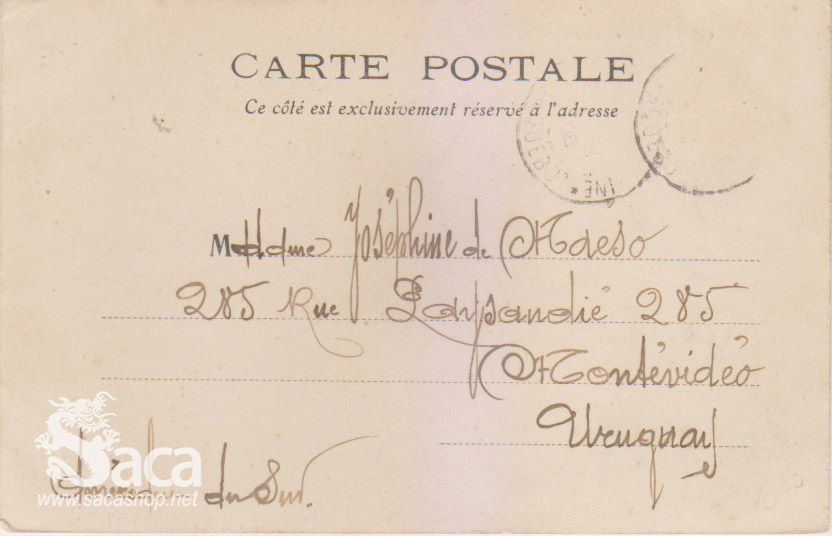 CARTE POSTALE
Ce côté est exclusivement réservé à l'adresse
Madame Joséphine de Maeso
285 Rue Paysandié 285
Montévidéo
Uruguay
Saca
www.sacashop.net
du Sud.